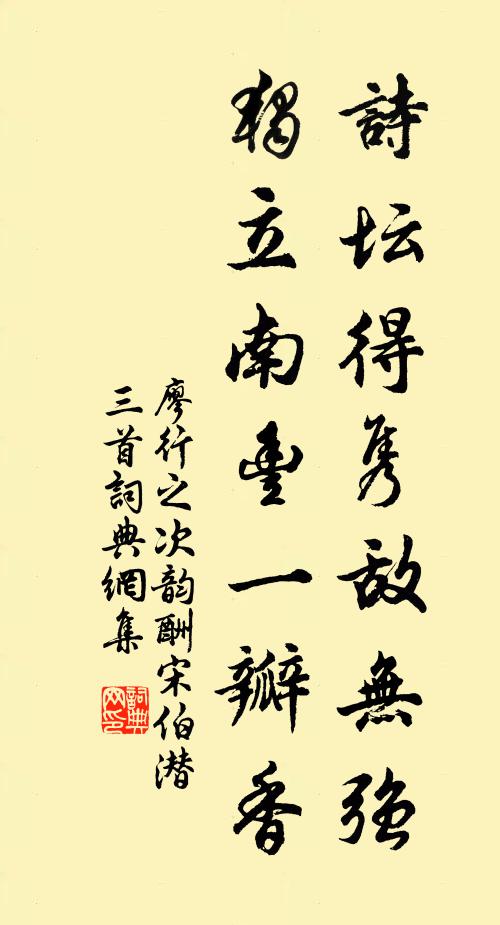 詩坛得隽敌無强
獨立南豊一瓣香
廖行之次韵酬宋伯潜
三首詞典網集
詞典
网印